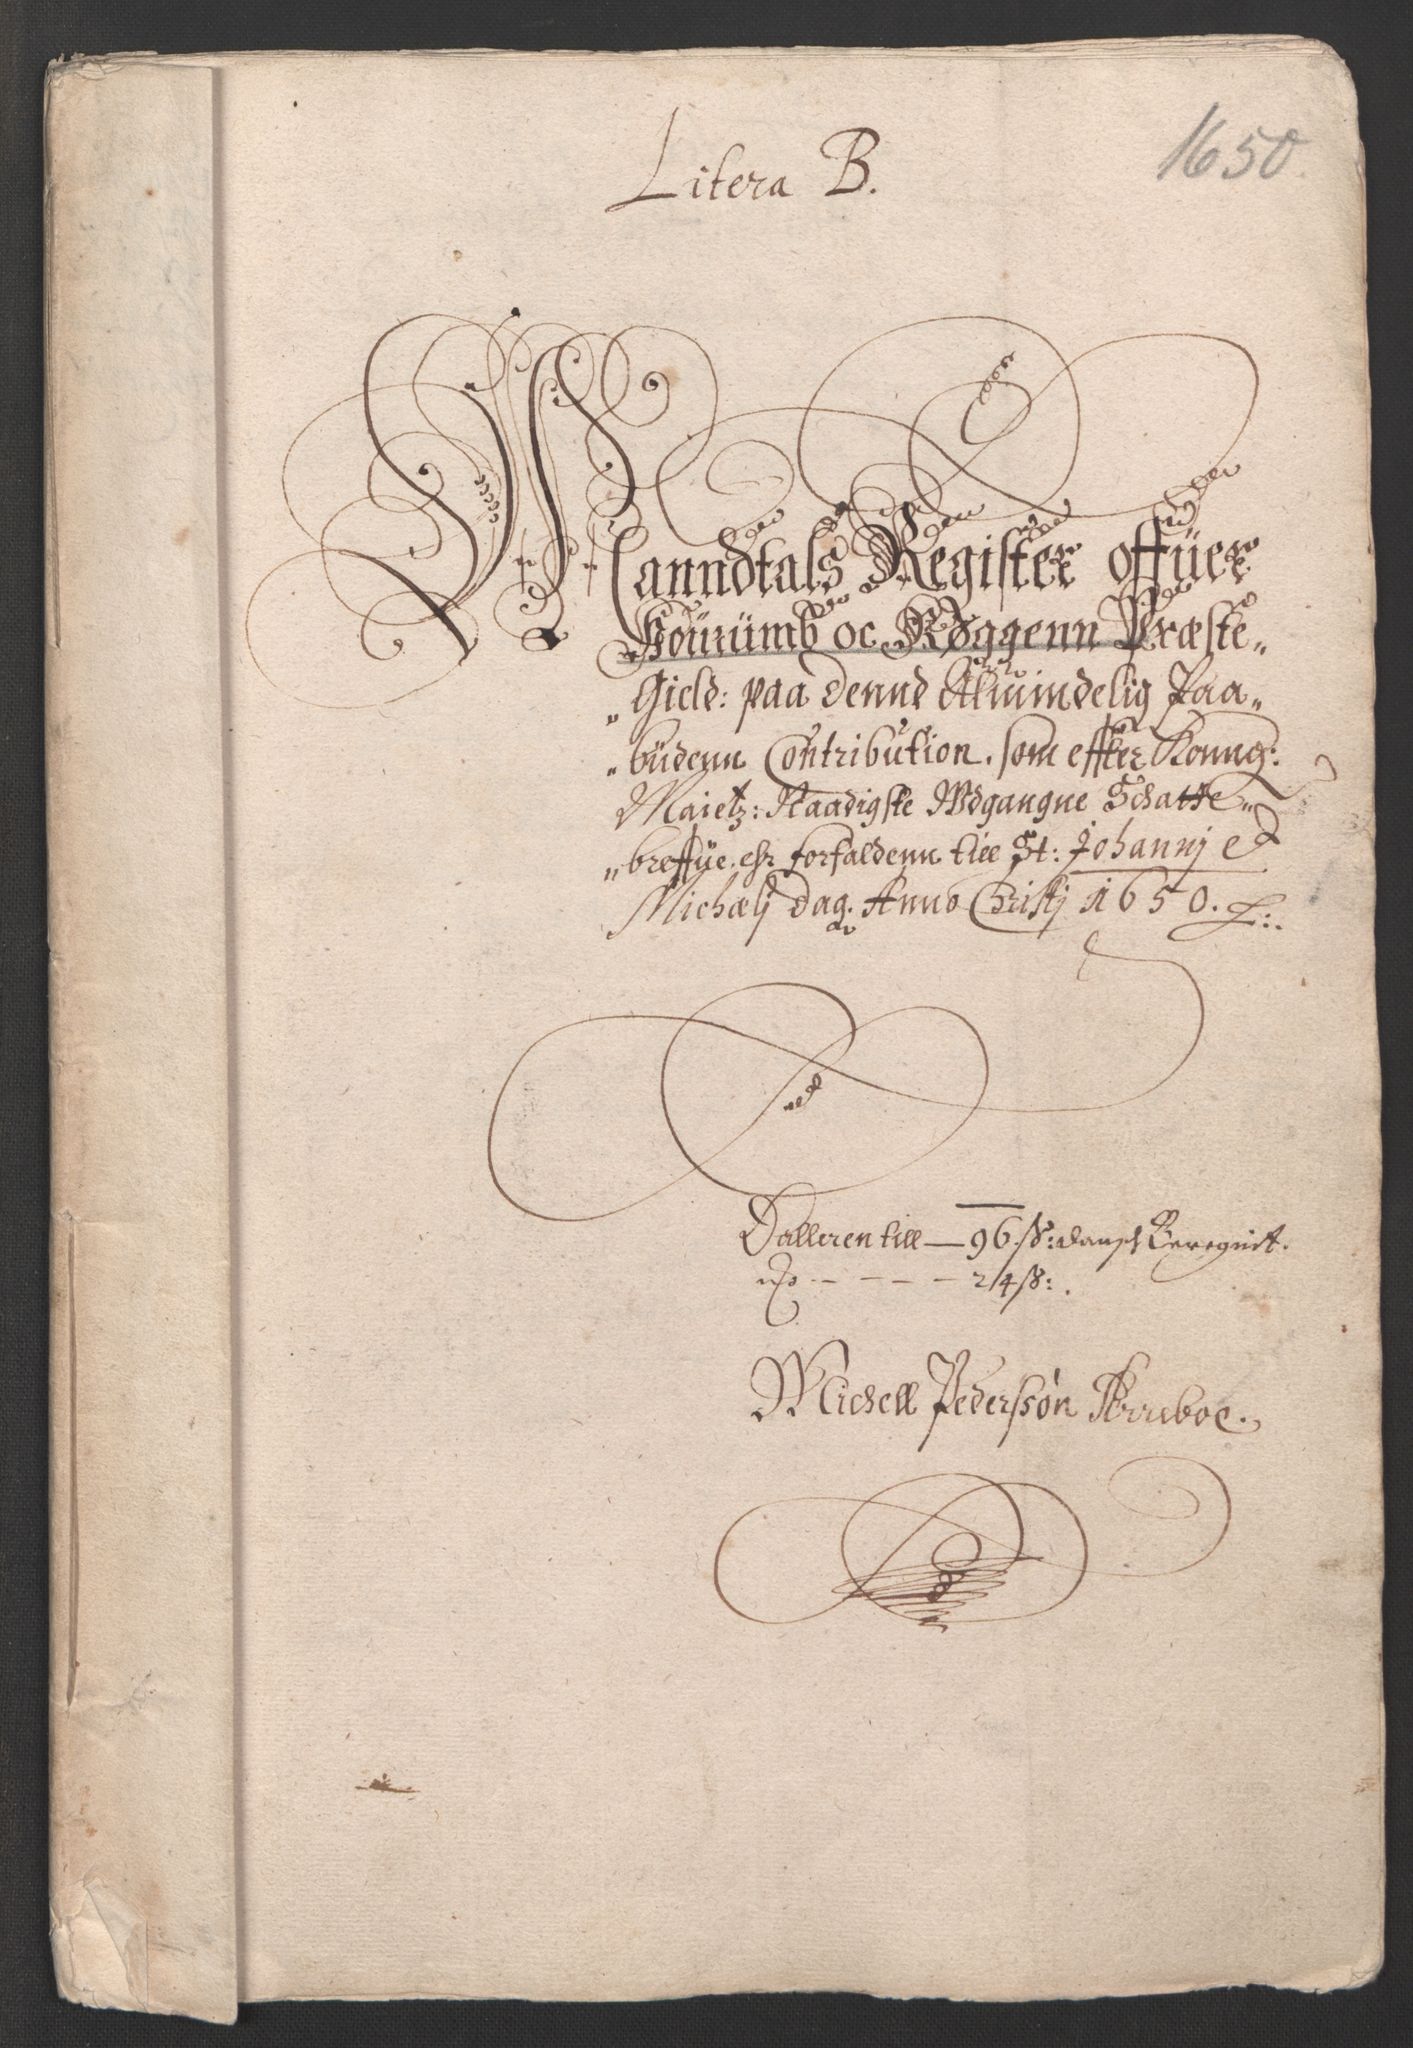 Litera B.
1650.
Manndtals Register offüer
Sourümb oc Røggenn Præste„
„Gield: paa dennd Almindelig Paa„
„büdenn Contribution. som effter Konng:
Maietz: Naadigste Wdgangne Schatte„
„breffüe. ehr forfaldenn till St: Johannj et
Michælj dag. Anno Christj 1650.
Dalleren till — 96 ß: dansch Beregnit.
ß - - - - 24 ß:.
Michell Pederssøn Skrueboe.